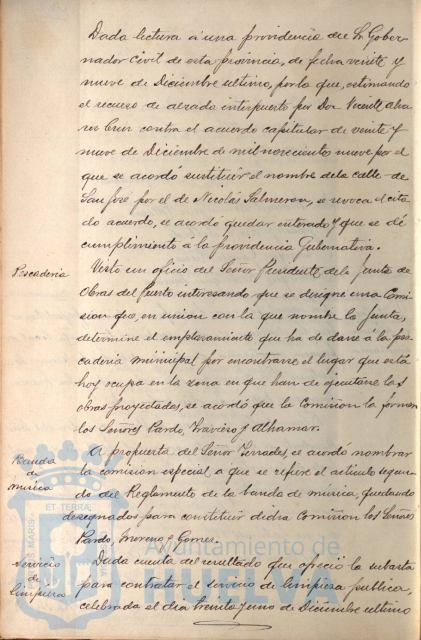 Dada lectura á una providencia del Sr. Gober-
nador Civil de esta provincia, de fecha veinte y
nueve de Diciembre ultimo, por la que, estimando
el recurso de alzada interpuesto por Don Vicente
contra el acuerdo capitular de veinte y
nueve de Diciembre de mil novecientos nueve por el
que se acordó sustituir el nombre de la calle de
San José por el de Nicolás Salmeron, se revoca el cita
do acuerdo, se acordó quedar enterado y que se dé
cumplimiento á la providencia Gubernativa.
Pescaderia
Visto un oficio del Señor Presidente de la Junta de
Obras del Puerto interesando que se designe una Comi
sion que, en union con la que nombre la Junta,
determine el emplazamiento que ha de darse á la pes
caderia municipal por encontrarse el lugar que esta
hoy ocupa en la zona en que han de ejecutarse las
obras proyectadas, se acordó que la Comision la formen
los Señores Pardo, Traviero y Alhamar.
Banda
de
música
A propuesta del Señor Terrades, se acordó nombrar
la comision especial, a que se refiere el articulo segun
do del Reglamento de la banda de música, quedando
designados para constituir dicha Comision los Señores
Pardo, Moreno y Gomez.
Servicio
de
limpieza
Dada cuenta del resultado que ofreció la subasta
para contratar el servicio de limpieza publica,
celebrada el dia treinta y uno de Diciembre ultimo
ET TERRA
Ayuntamiento de